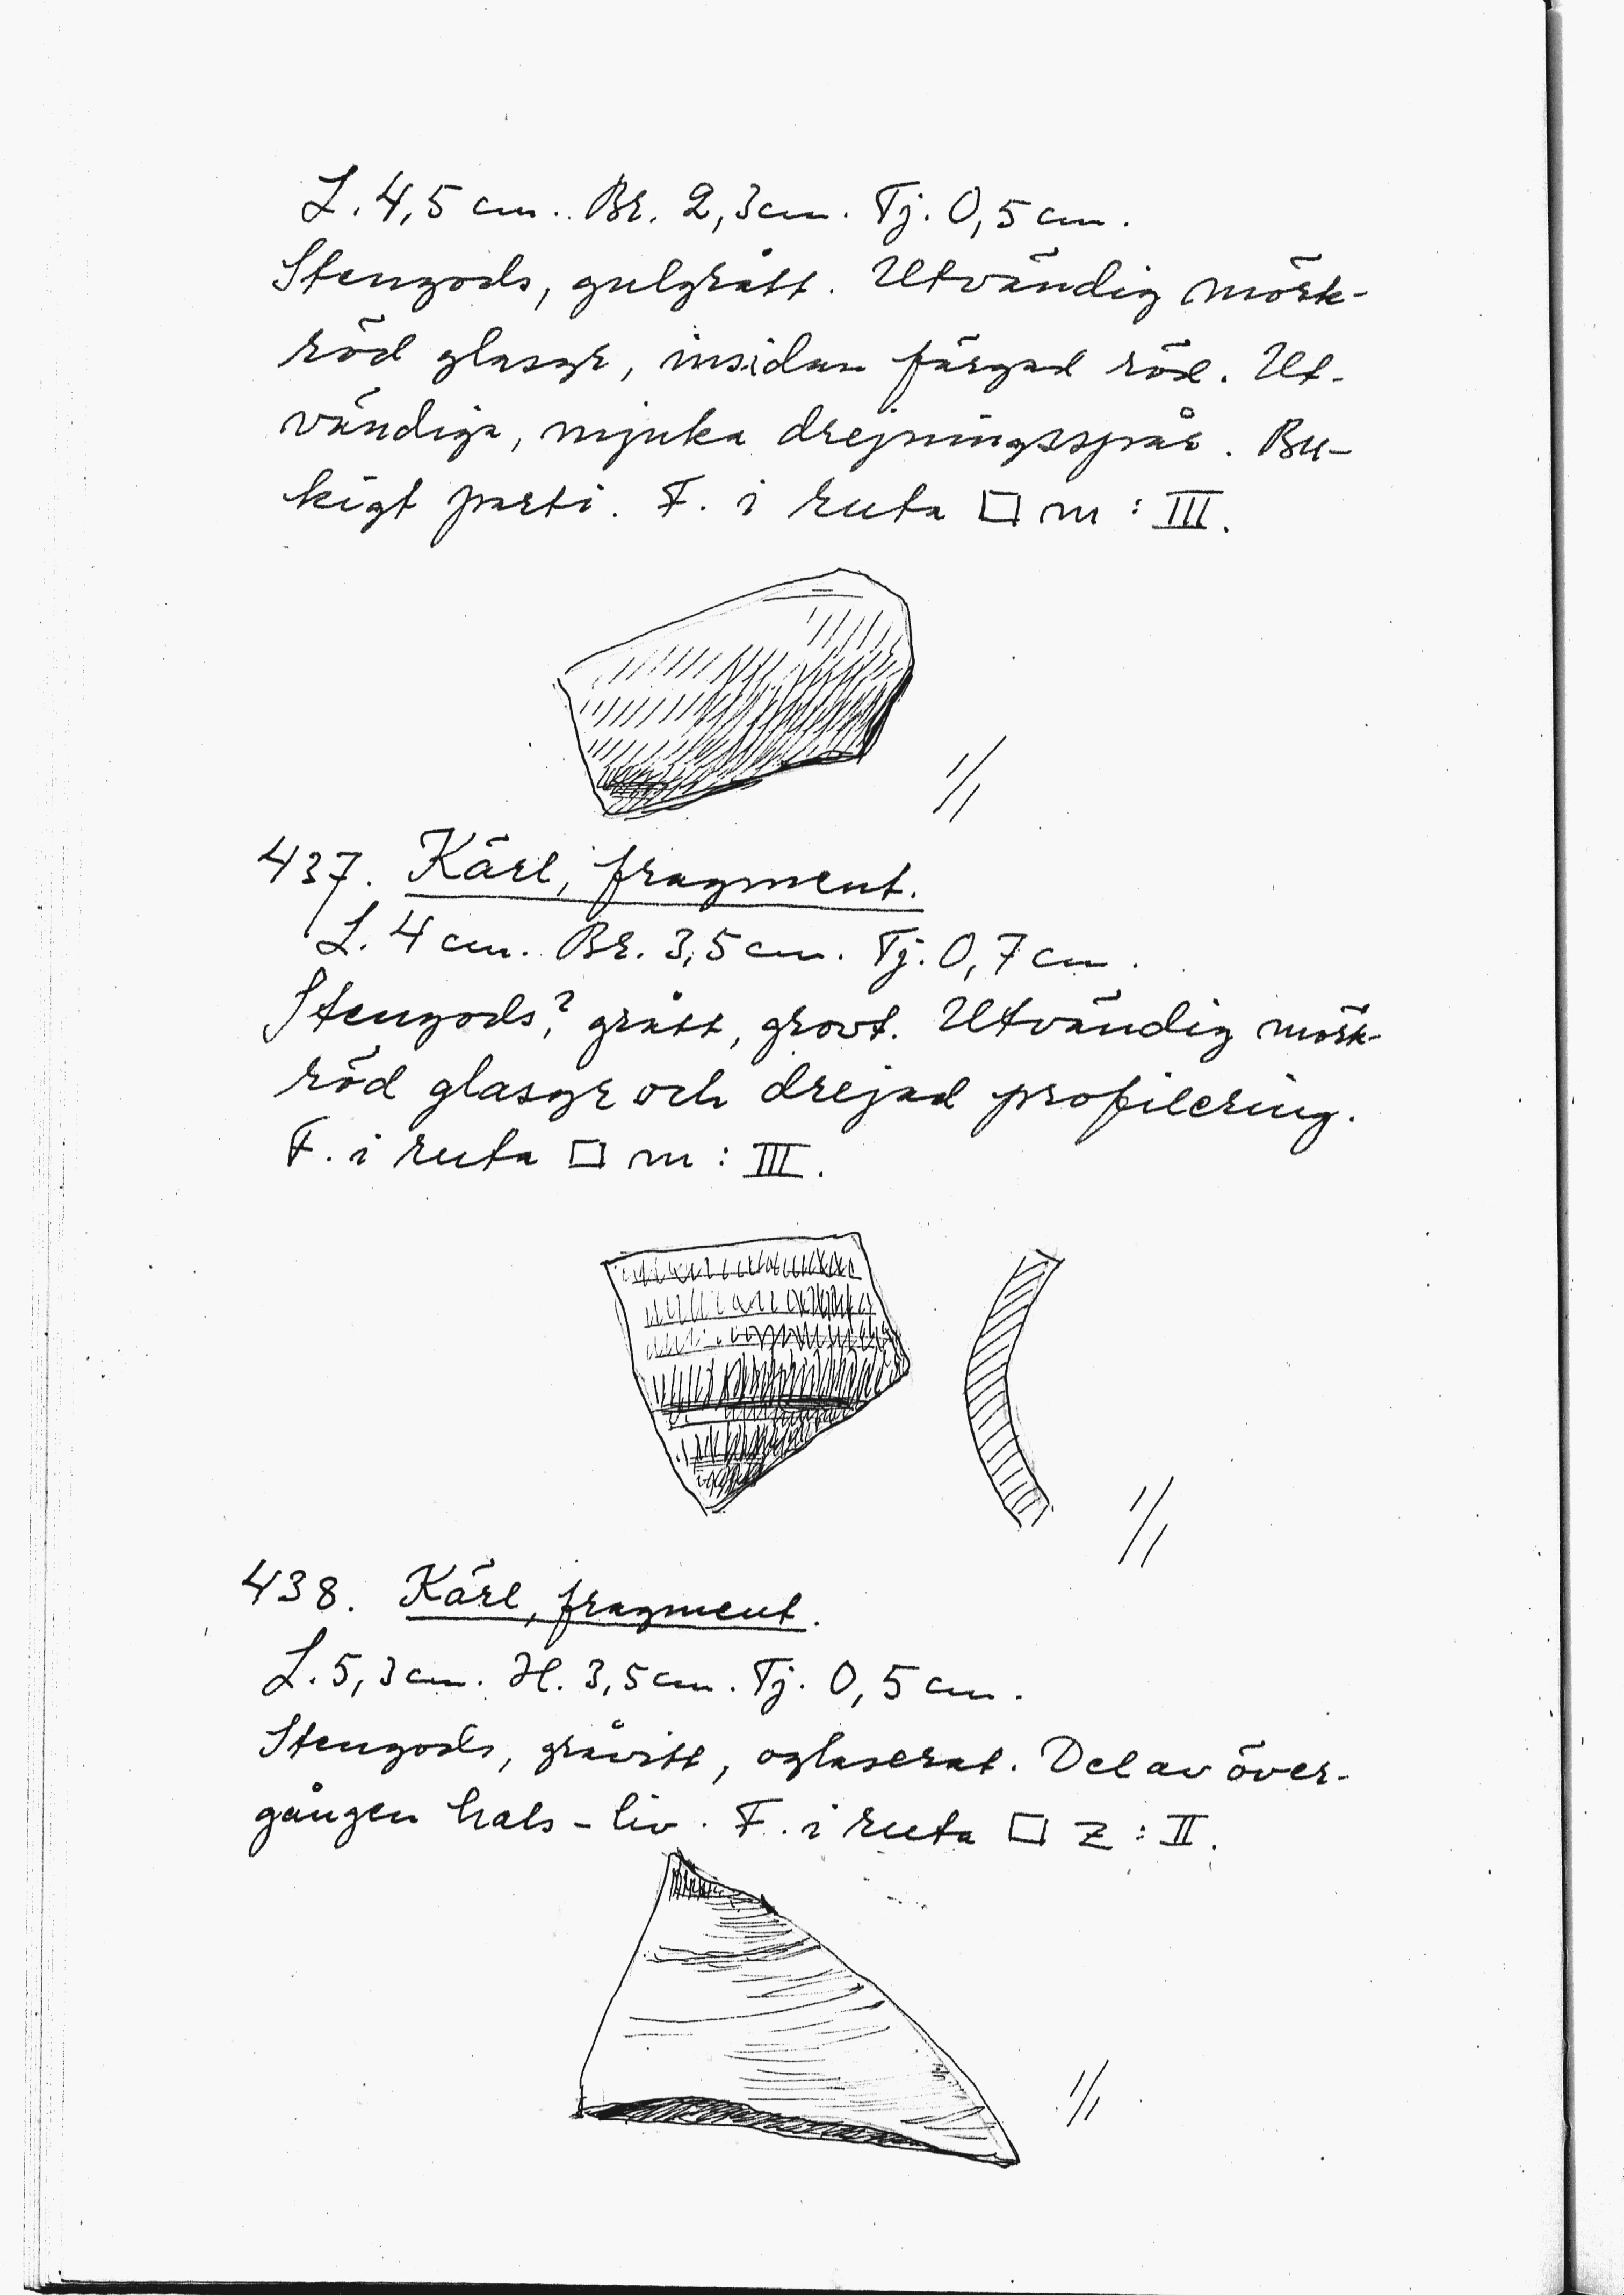 L. 4,5 cm. Br. 2,3 cm. Tj. 0,5 cm.
Stengods, gulgrått. Utvändig mörk-
röd glasyr, insidan färgad röd. Ut-
vändiga, mjuka drejningsspår. Bu-
kigt parti. F. i ruta □ m : III.
1/1
437. Kärl, fragment.
L. 4 cm. Br. 3,5 cm. Tj. 0,7 cm.
Stengods? grått, grovt. Utvändig mörk-
röd glasyr och drejad profilering.
F. i ruta □ m : III.
1/1
438. Kärl, fragment.
L. 5,3 cm. H. 3,5 cm. Tj. 0,5 cm.
Stengods, gråvitt, oglaserat. Del av över-
gången hals - liv. F. i ruta □ z : II.
1/1